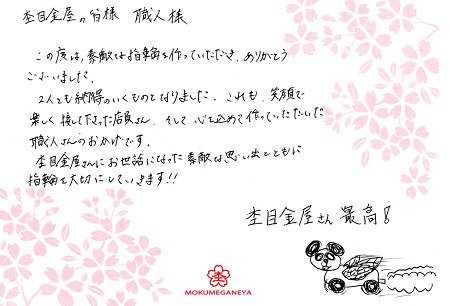 杢目金屋の皆様 職人様
この度は、素敵な指輪を作っていただき、ありがとう
ございました。
2人とも納得のいくものとなりました。これも、笑顔で
楽しく接して下さった店員さん、そして心を込めて作っていただいた
職人さんのおかげです。
杢目金屋さんにお世話になった素敵な思い出とともに
指輪を大切にしていきます!!
杢目金屋さん 最高!
MOKUMEGANEYA